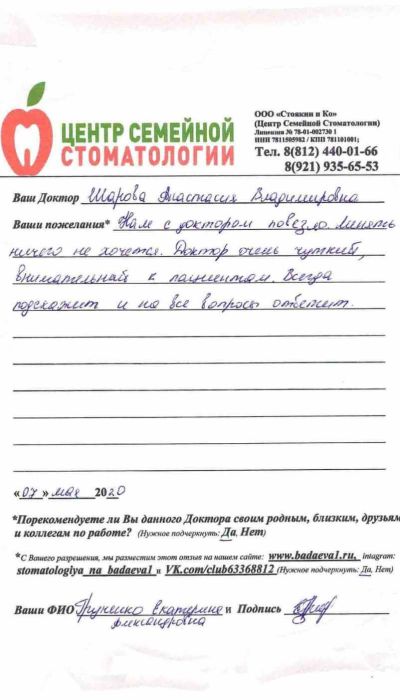 ЦЕНТР СЕМЕЙНОЙ
СТОМАТОЛОГИИ
ООО «Стоякин и Ко»
(Центр Семейной Стоматологии)
Лицензия № 78-01-002730 1
ИНН 7811505982 / КПП 781101001;
Тел. 8(812) 440-01-66
8(921) 935-65-53
Ваш Доктор Шарова Анастасия Владимировна
Ваши пожелания* Нам с доктором повезло. Менять
ничего не хочется. Доктор очень чуткий,
внимательный к пациентам. Всегда
подскажет и на все вопросы ответит.
« 07 » мая 2020
*Порекомендуете ли Вы данного Доктора своим родным, близким, друзьям
и коллегам по работе? (Нужное подчеркнуть: Да, Нет)
*С Вашего разрешения, мы разместим этот отзыв на нашем сайте: www.badaeva1.ru, intagram:
stomatologiya_na_badaeva1 и VK.com/club63368812 (Нужное подчеркнуть: Да, Нет)
Ваши ФИО Екатерина и Подпись
Александровна